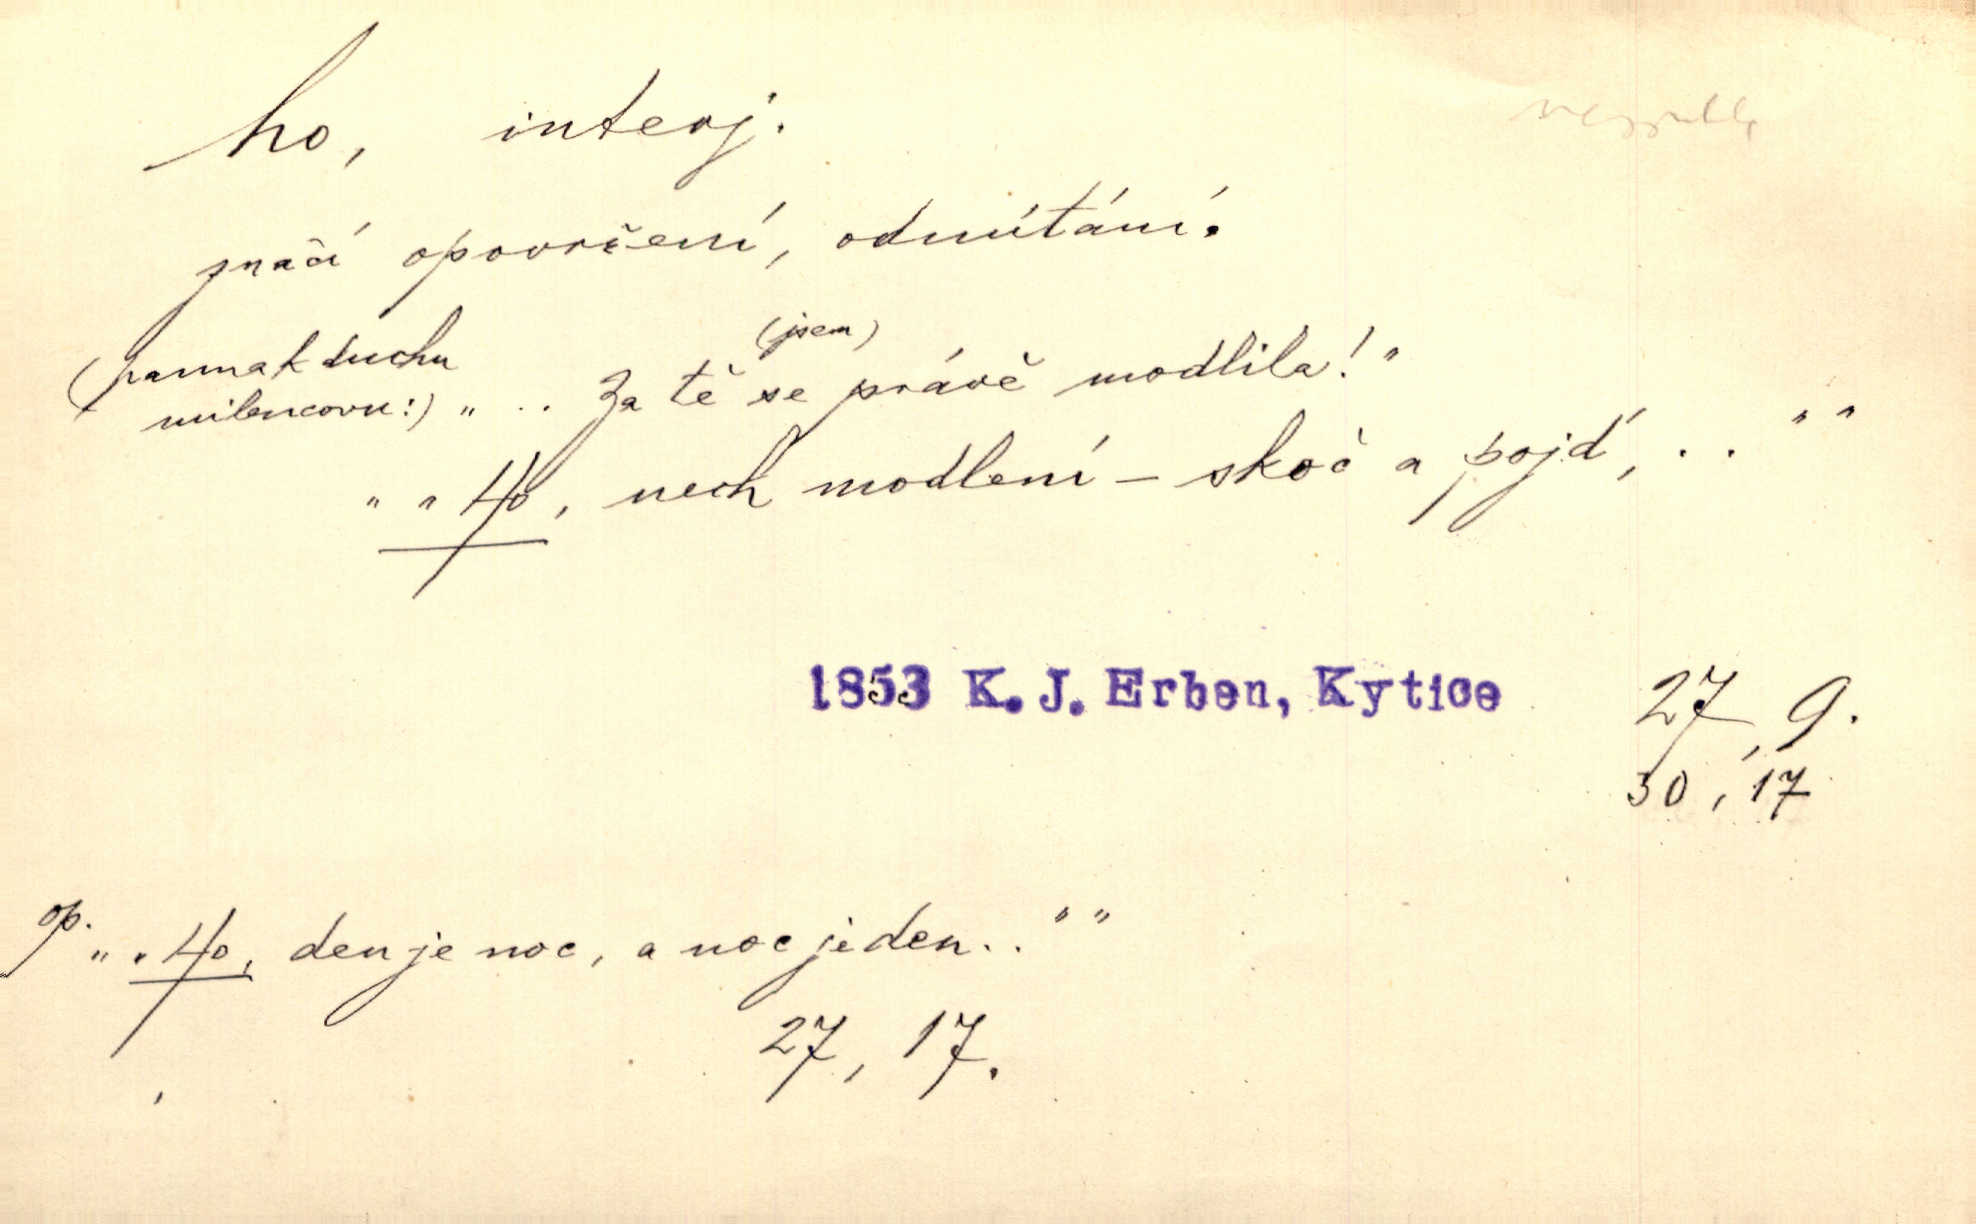 ho, interj.
značí opovržení, odmítání.
(jsem)
(panna k duchu
milencovu:) „ .. Za tě se právě modlila!"
„ „ Ho, nech modlení – skoč a pojď, .. " "
1853 K. J. Erben, Kytice 27, 9.
30, 17
op. „ „ Ho, den je noc, a noc je den .. " "
27, 17.